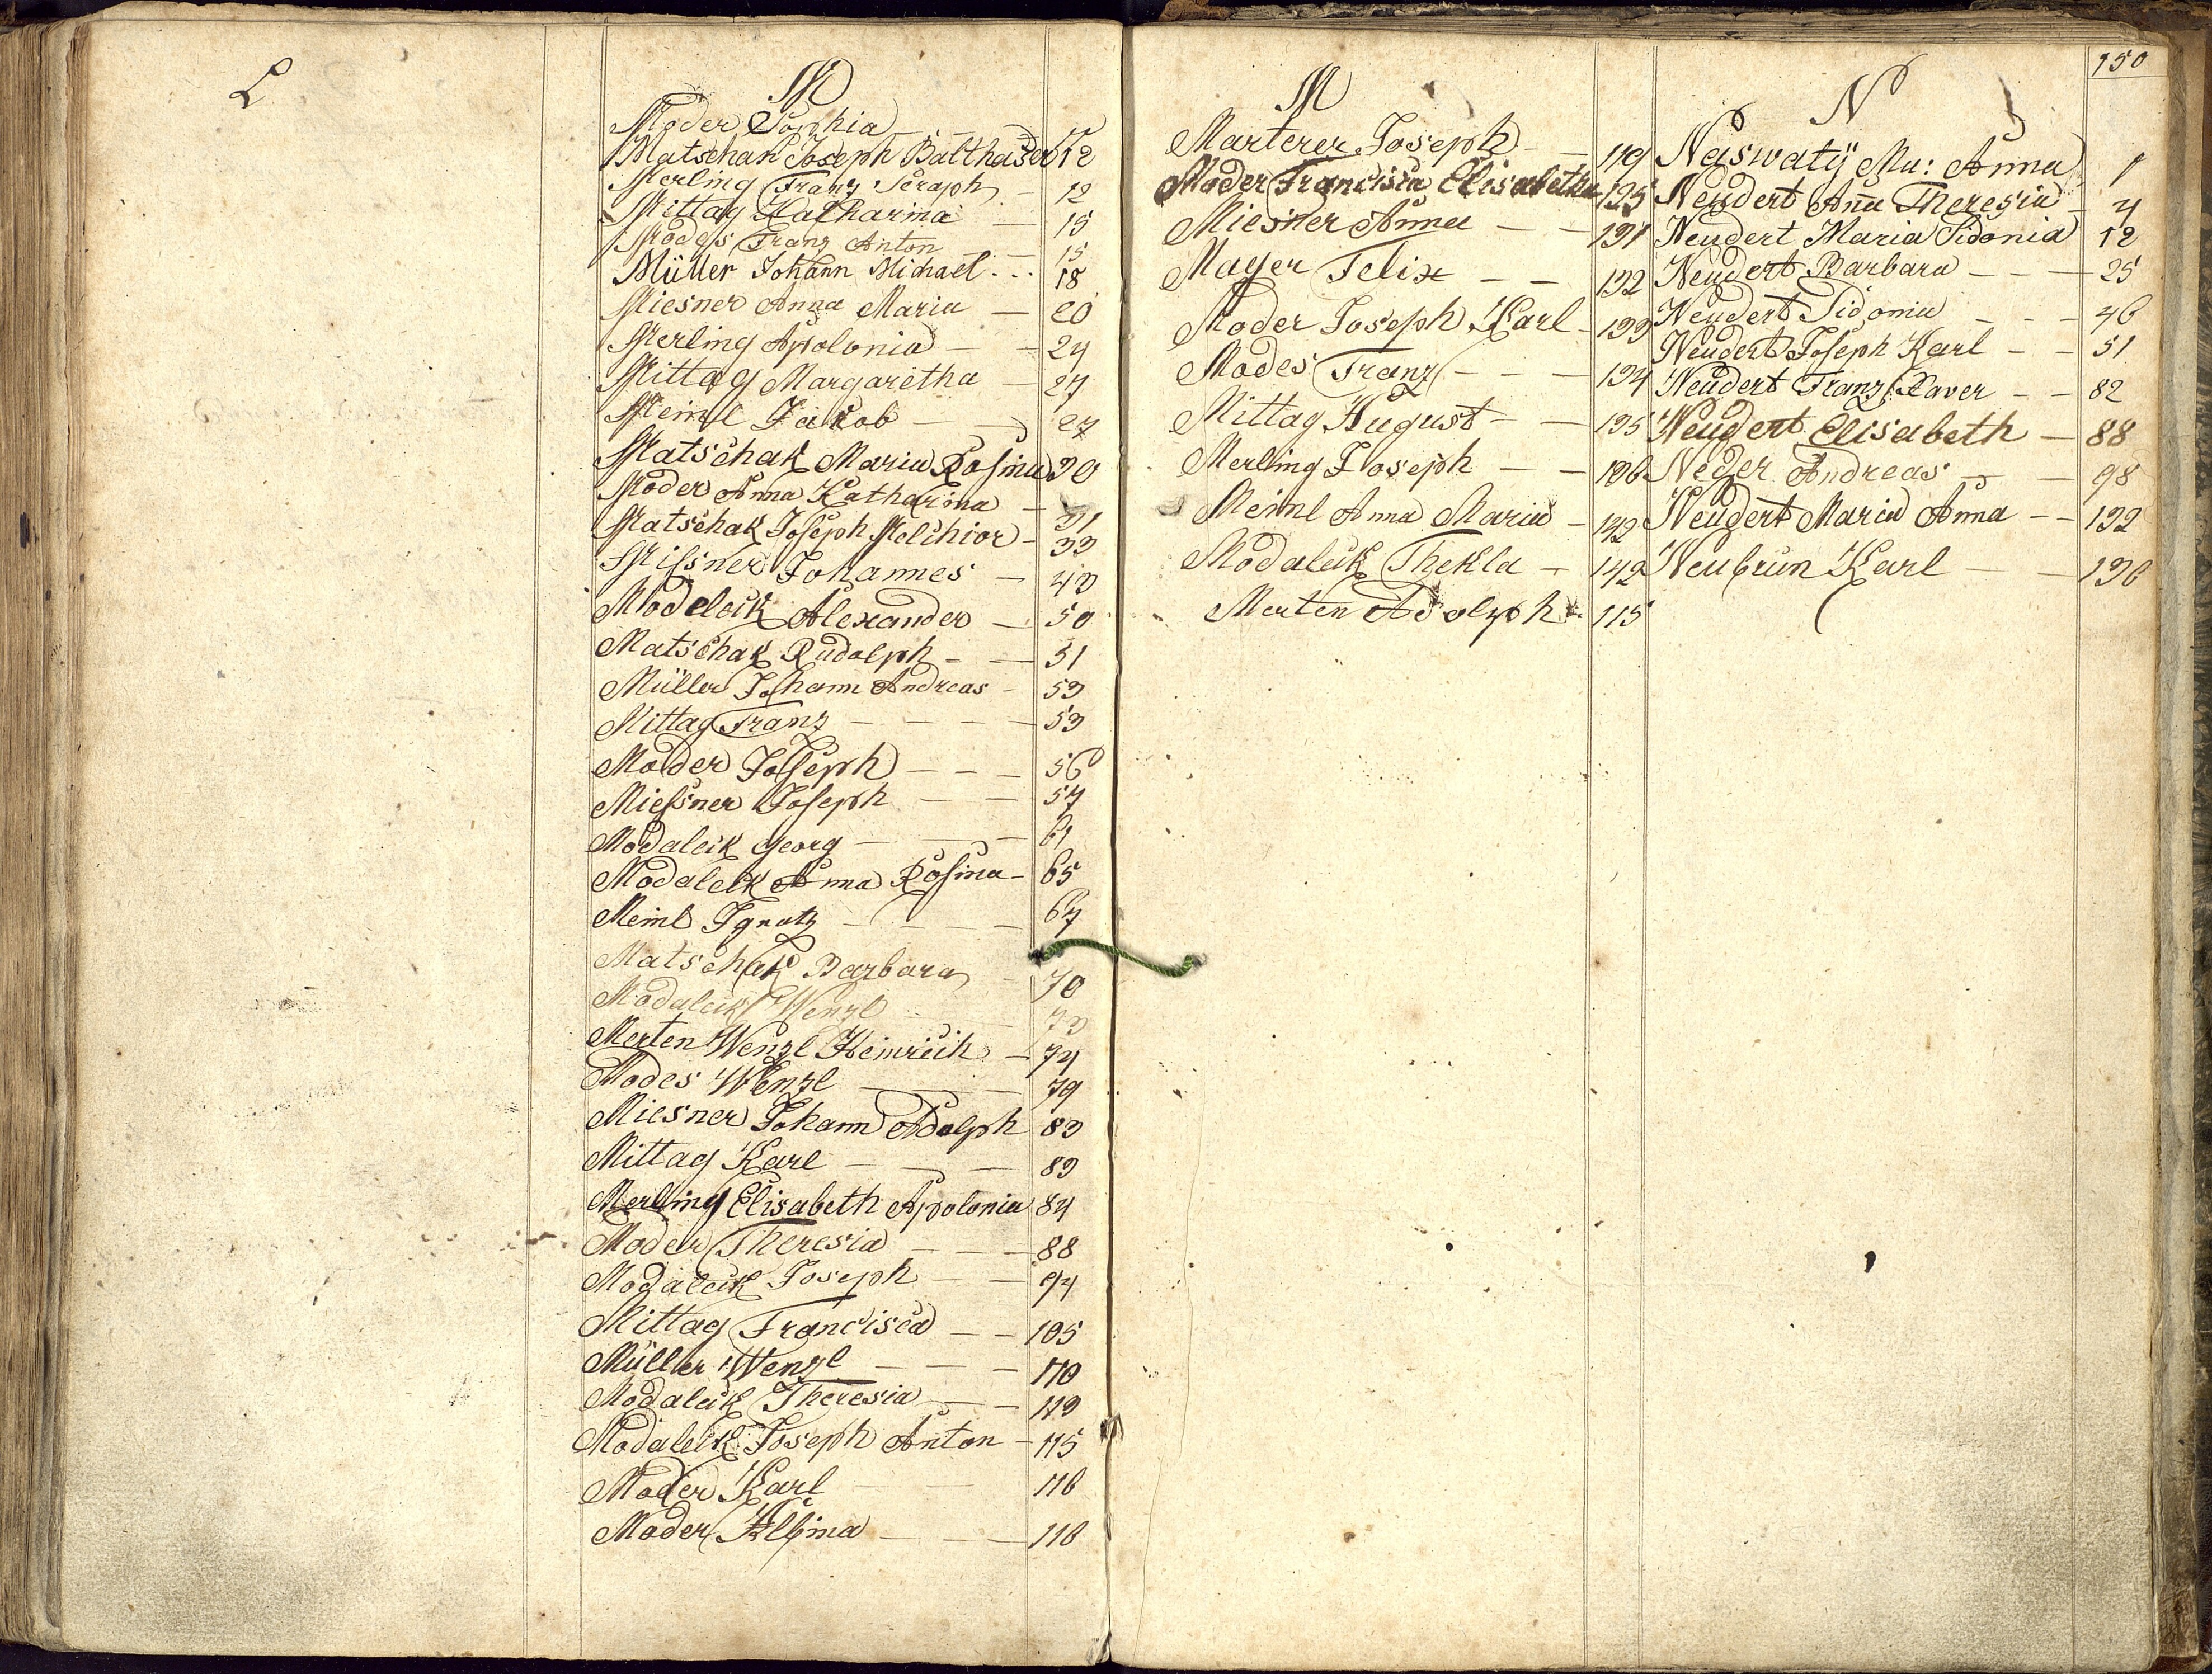 L
M
Moder Sophia
Matschak Joseph Balthaser 12
Merling Franz Seraph - 12
Mittag Katharina - 15
Modes Franz Anton - 15
Müller Johann Michael ... 18
Miesner Anna Maria - 20
Merling Apolonia - 24
Mittag Margaretha - 27
Meinl Jakob - 27
Matschak Maria Rosina 30
Moder Anna Katharina - 31
Matschak Joseph Melchior - 33
Missner Johannes - 43
Modeleik Alexander - 50
Matschak Rudolph - - 51
Müller Johann Andreas - 53
Mittag Franz - - - - 53
Moder Joseph - - - 56
Miessner Joseph - - 57
Modaleik Georg - - - 61
Modaleik Anna Rosina - 65
Meinl Ignatz - - - - 67
Matschak Barbara - 70
Modaleik Wenzl - - 73
Merten Wenzl Heinrich - 74
Modes Wenzl - - - 79
Miesner Johann Adolph 83
Mittag Karl - - - 83
Merling Elisabeth Apolonia 84
Moder Theresia - - - 88
Modaleik Joseph - - 94
Mittag Francisca - - 105
Müller Wenzl - - - 110
Modaleik Theresia - - 113
Modaleik Joseph Anton - 115
Moder Karl - - 116
Moder Albina - - - 118
M
Marterer Joseph - - 119
Moder Francisca Elisabetha 125
Miesner Anna - - 131
Mayer Felix - - 132
Moder Joseph Karl - 133
Modes Franz - - - 134
Mittag August - - 135
Merling Joseph - - 136
Meinl Anna Maria - 142
Modaleik Thekla - 142
Merten Adolph - 115
150
N
Neiswatÿ Ma: Anna 1
Neudert Anna Theresia - 4
Neudert Maria Sidonia 12
Neudert Barbara - - - 25
Neudert Sidonia - - - 46
Neudert Joseph Karl - - 51
Neudert Franz Xaver - - 82
Neudert Elisabeth - 88
Neger Andreas - - 98
Neudert Maria Anna - - 132
Neubrun Karl - - 136